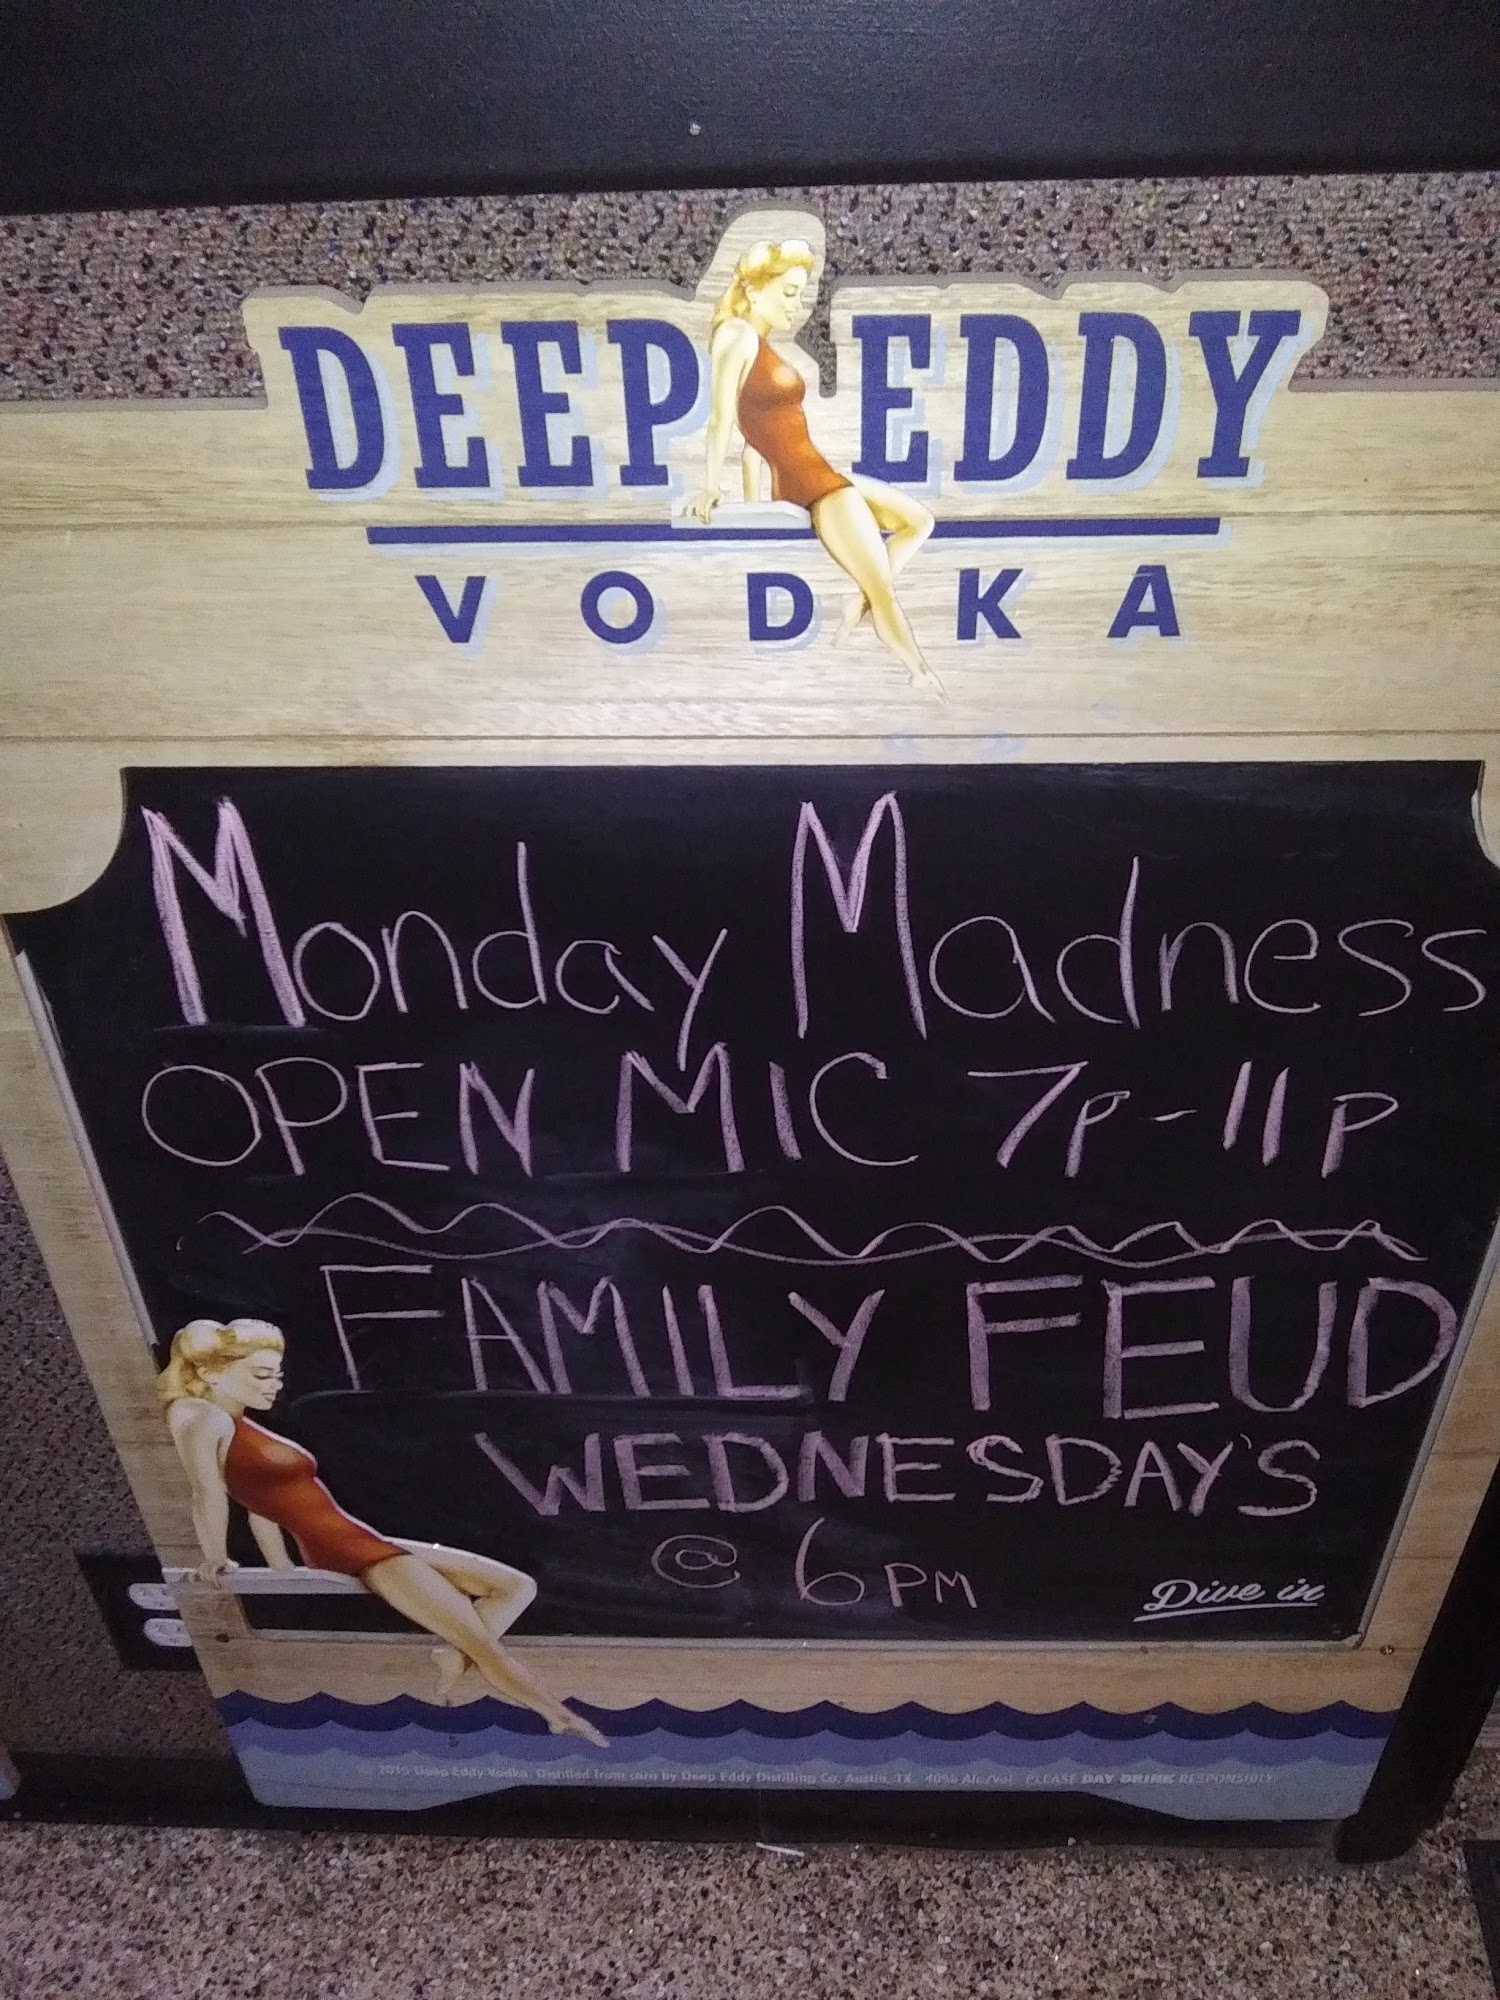 DEEP EDDY
VODKA
Monday Madness
OPEN MIC 7P-11P
FAMILY FEUD
WEDNESDAY'S
@ 6PM
Dive in
© 2015 Deep Eddy Vodka. Distilled from corn by Deep Eddy Distilling Co, Austin, TX. 40% Alc./Vol. PLEASE DAY DRINK RESPONSIBLY.